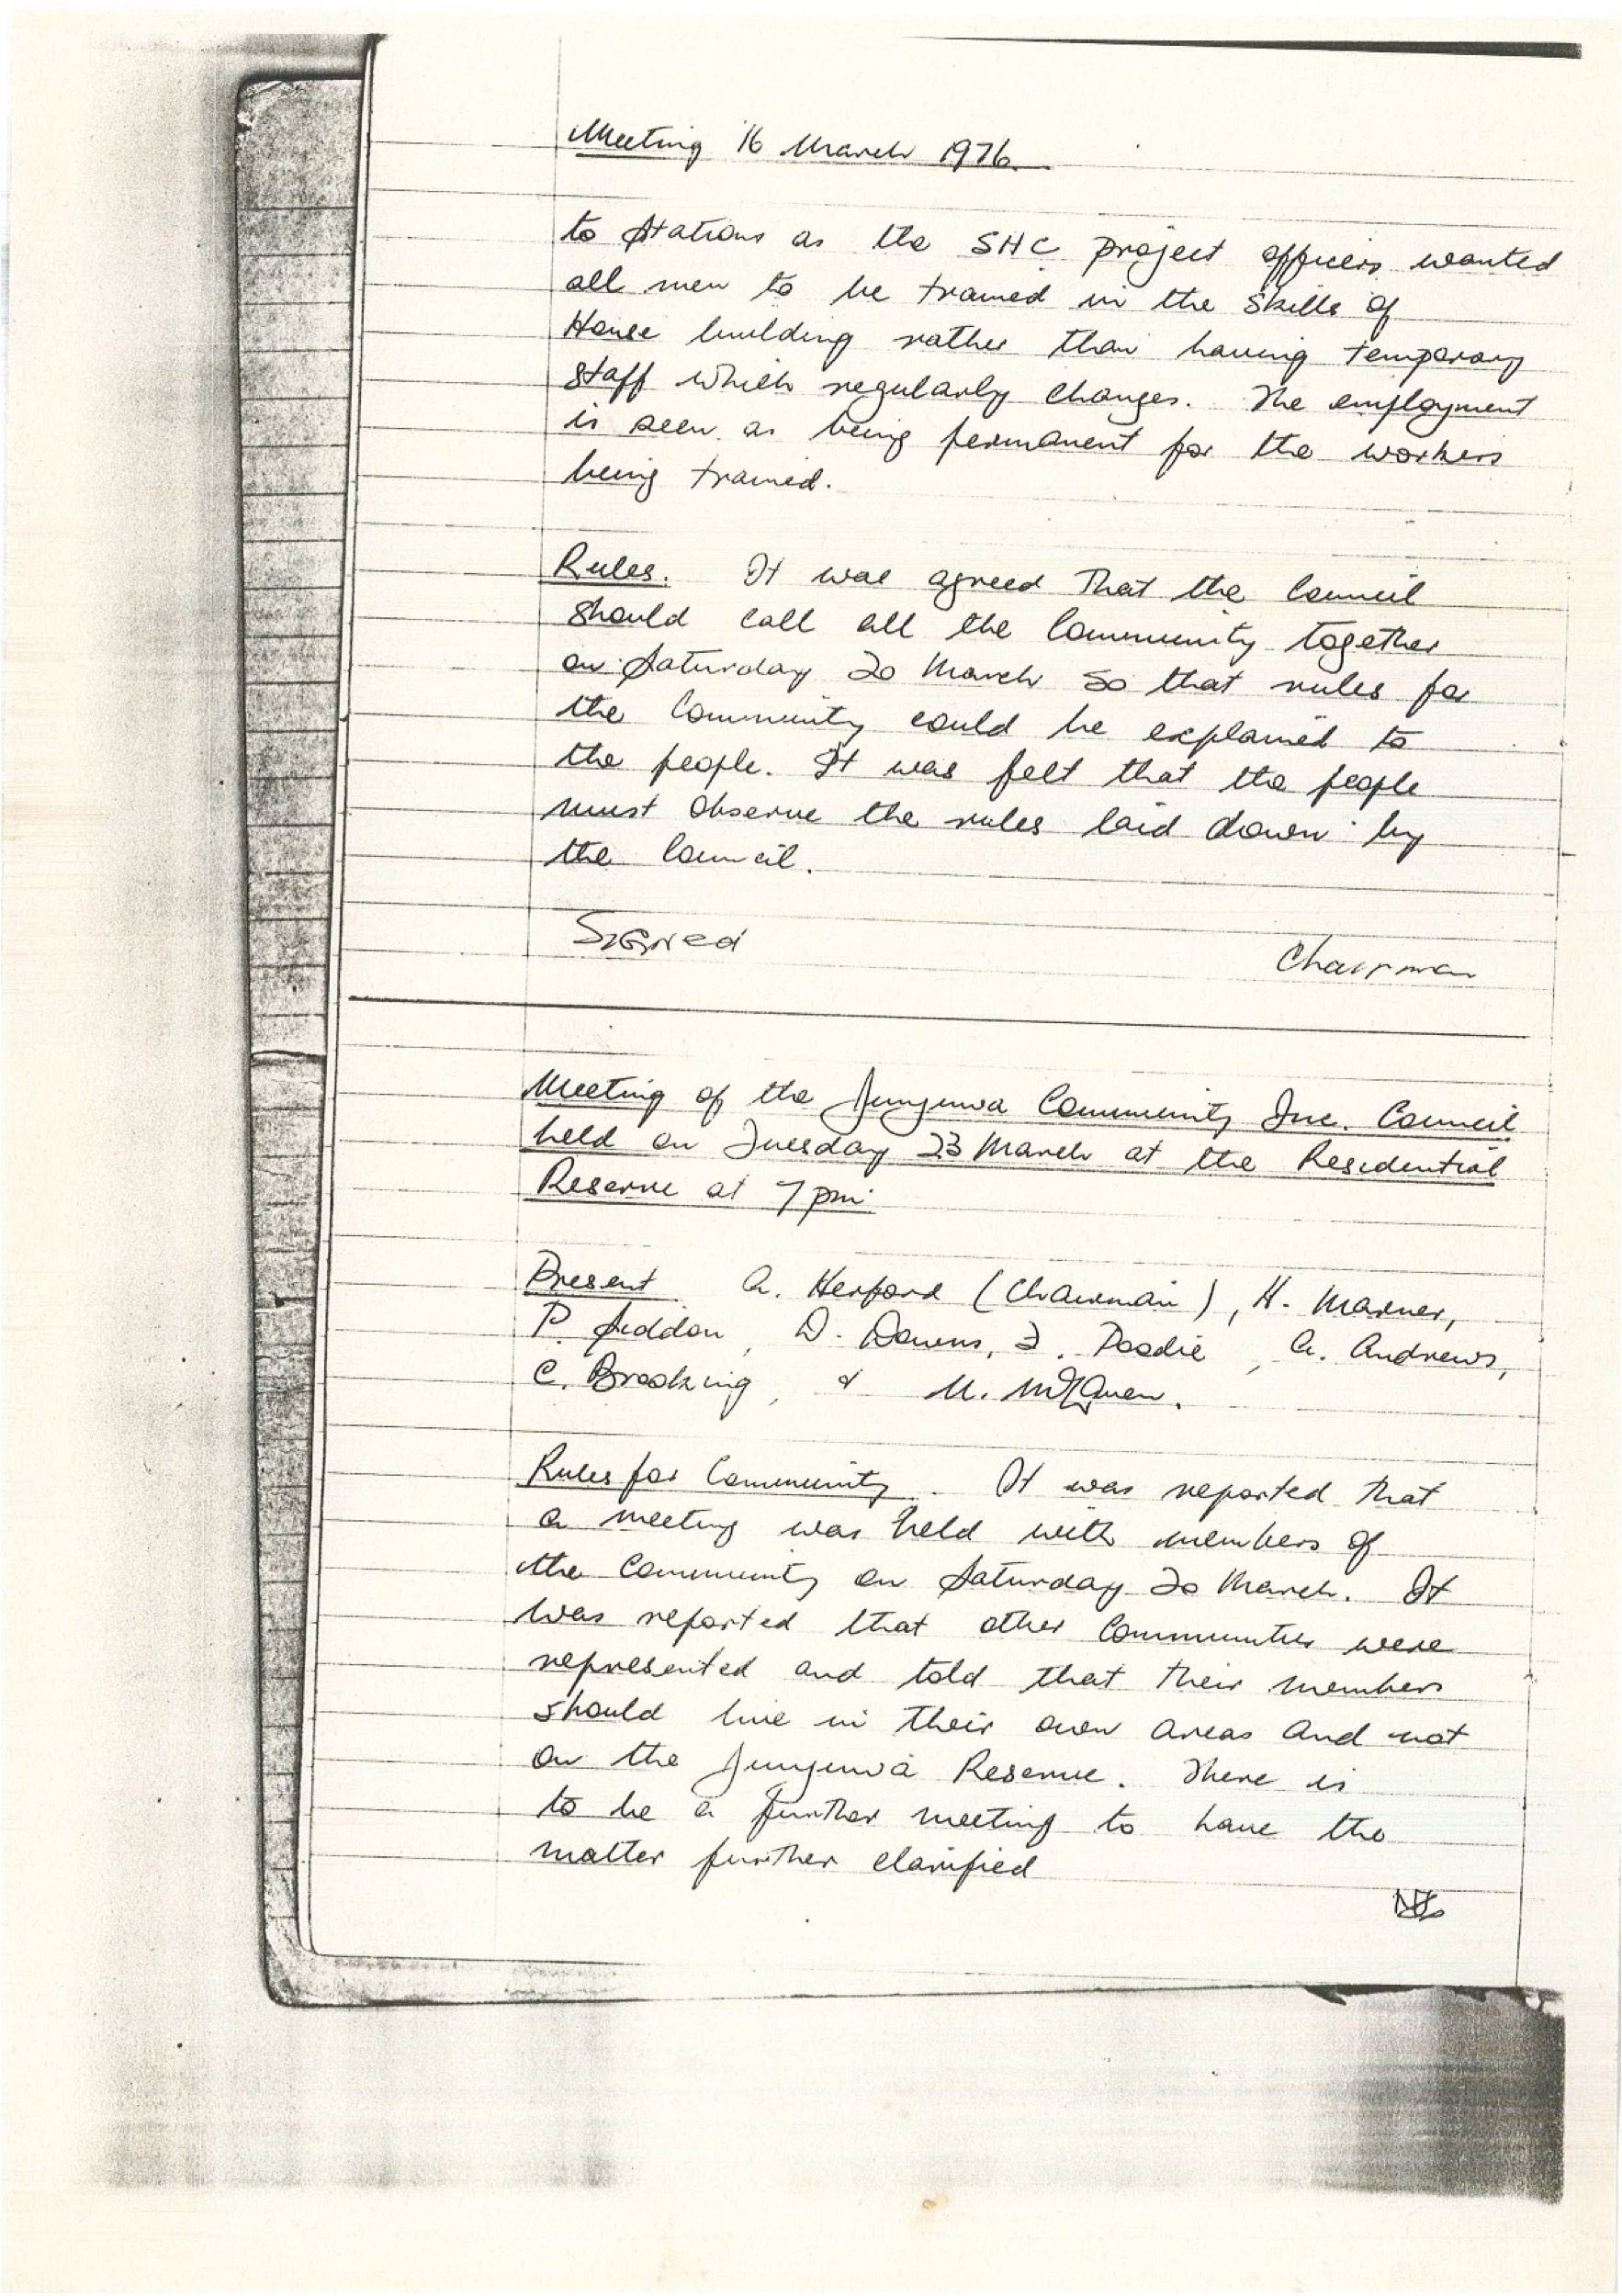 Meeting 16 March 1976.
to Stations as the SHC project officers wanted
all men to be trained in the skills of
House building rather than having temporary
staff which regularly changes. The employment
is seen as being permanent for the workers
being trained.
Rules. It was agreed that the Council
should call all the Community together
on Saturday 20 March so that rules for
the Community could be explained to
the people. It was felt that the people
must observe the rules laid down by
the Council.
Signed Chairman
Meeting of the Junjuwa Community Inc. Council
held on Tuesday 23 March at the Residential
Reserve at 7 pm.
Present A. Herford (Chairman), H. Marner,
P. Siddon, D. Downs, J. Doodie, A. Andrews,
C. Brooking, & M.
Rules for Community. It was reported that
a meeting was held with members of
the Community on Saturday 20 March. It
was reported that other Communities were
represented and told that their members
should live in their own areas and not
on the Junjuwa Reserve. There is
to be a further meeting to have the
matter further clarified